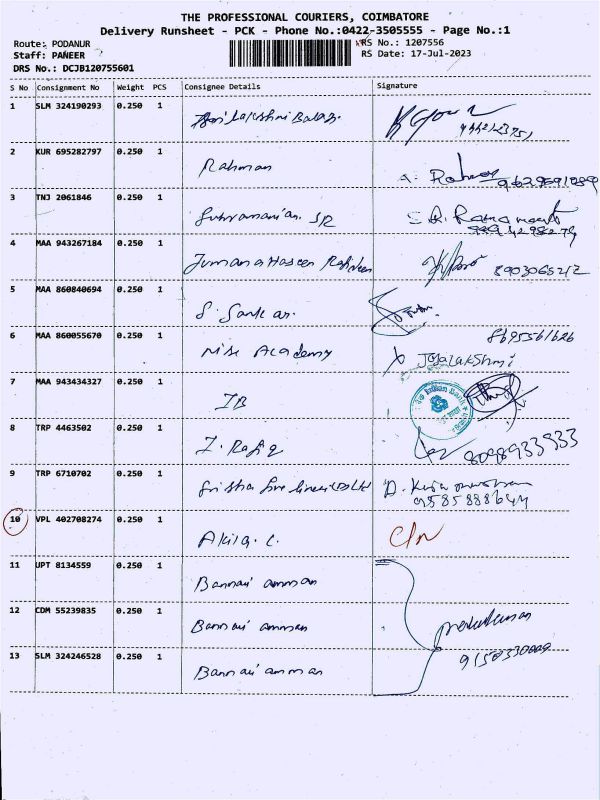 THE PROFESSIONAL COURIERS, COIMBATORE
Delivery Runsheet - PCK - Phone No.:0422-3505555 - Page No.:1
Route: PODANUR
RS No.: 1207556
Staff: PANEER
RS Date: 17-Jul-2023
DRS No.: DCJB120755601
S No Consignment No Weight PCS Consignee Details Signature
1 SLM 324190293 0.250 1
2 KUR 695282797 0.250 1 Rahman
3 TNJ 2061846 0.250 1 Subramanian
4 MAA 943267184 0.250 1 Jumana 8903065212
5 MAA 860840694 0.250 1 S. Sankar
6 MAA 860055670 0.250 1 Academy 8695561626
Jayalakshmi
7 MAA 943434327 0.250 1 IB Indian Bank
8 TRP 4463502 0.250 1 Rafiq 8098933933
9 TRP 6710702 0.250 1 D.
9585888644
10 VPL 402708274 0.250 1 Akila. C.
11 UPT 8134559 0.250 1 Bannari amman
12 CDM 55239835 0.250 1 Bannari amman
13 SLM 324246528 0.250 1 Bannari amman 9150330009